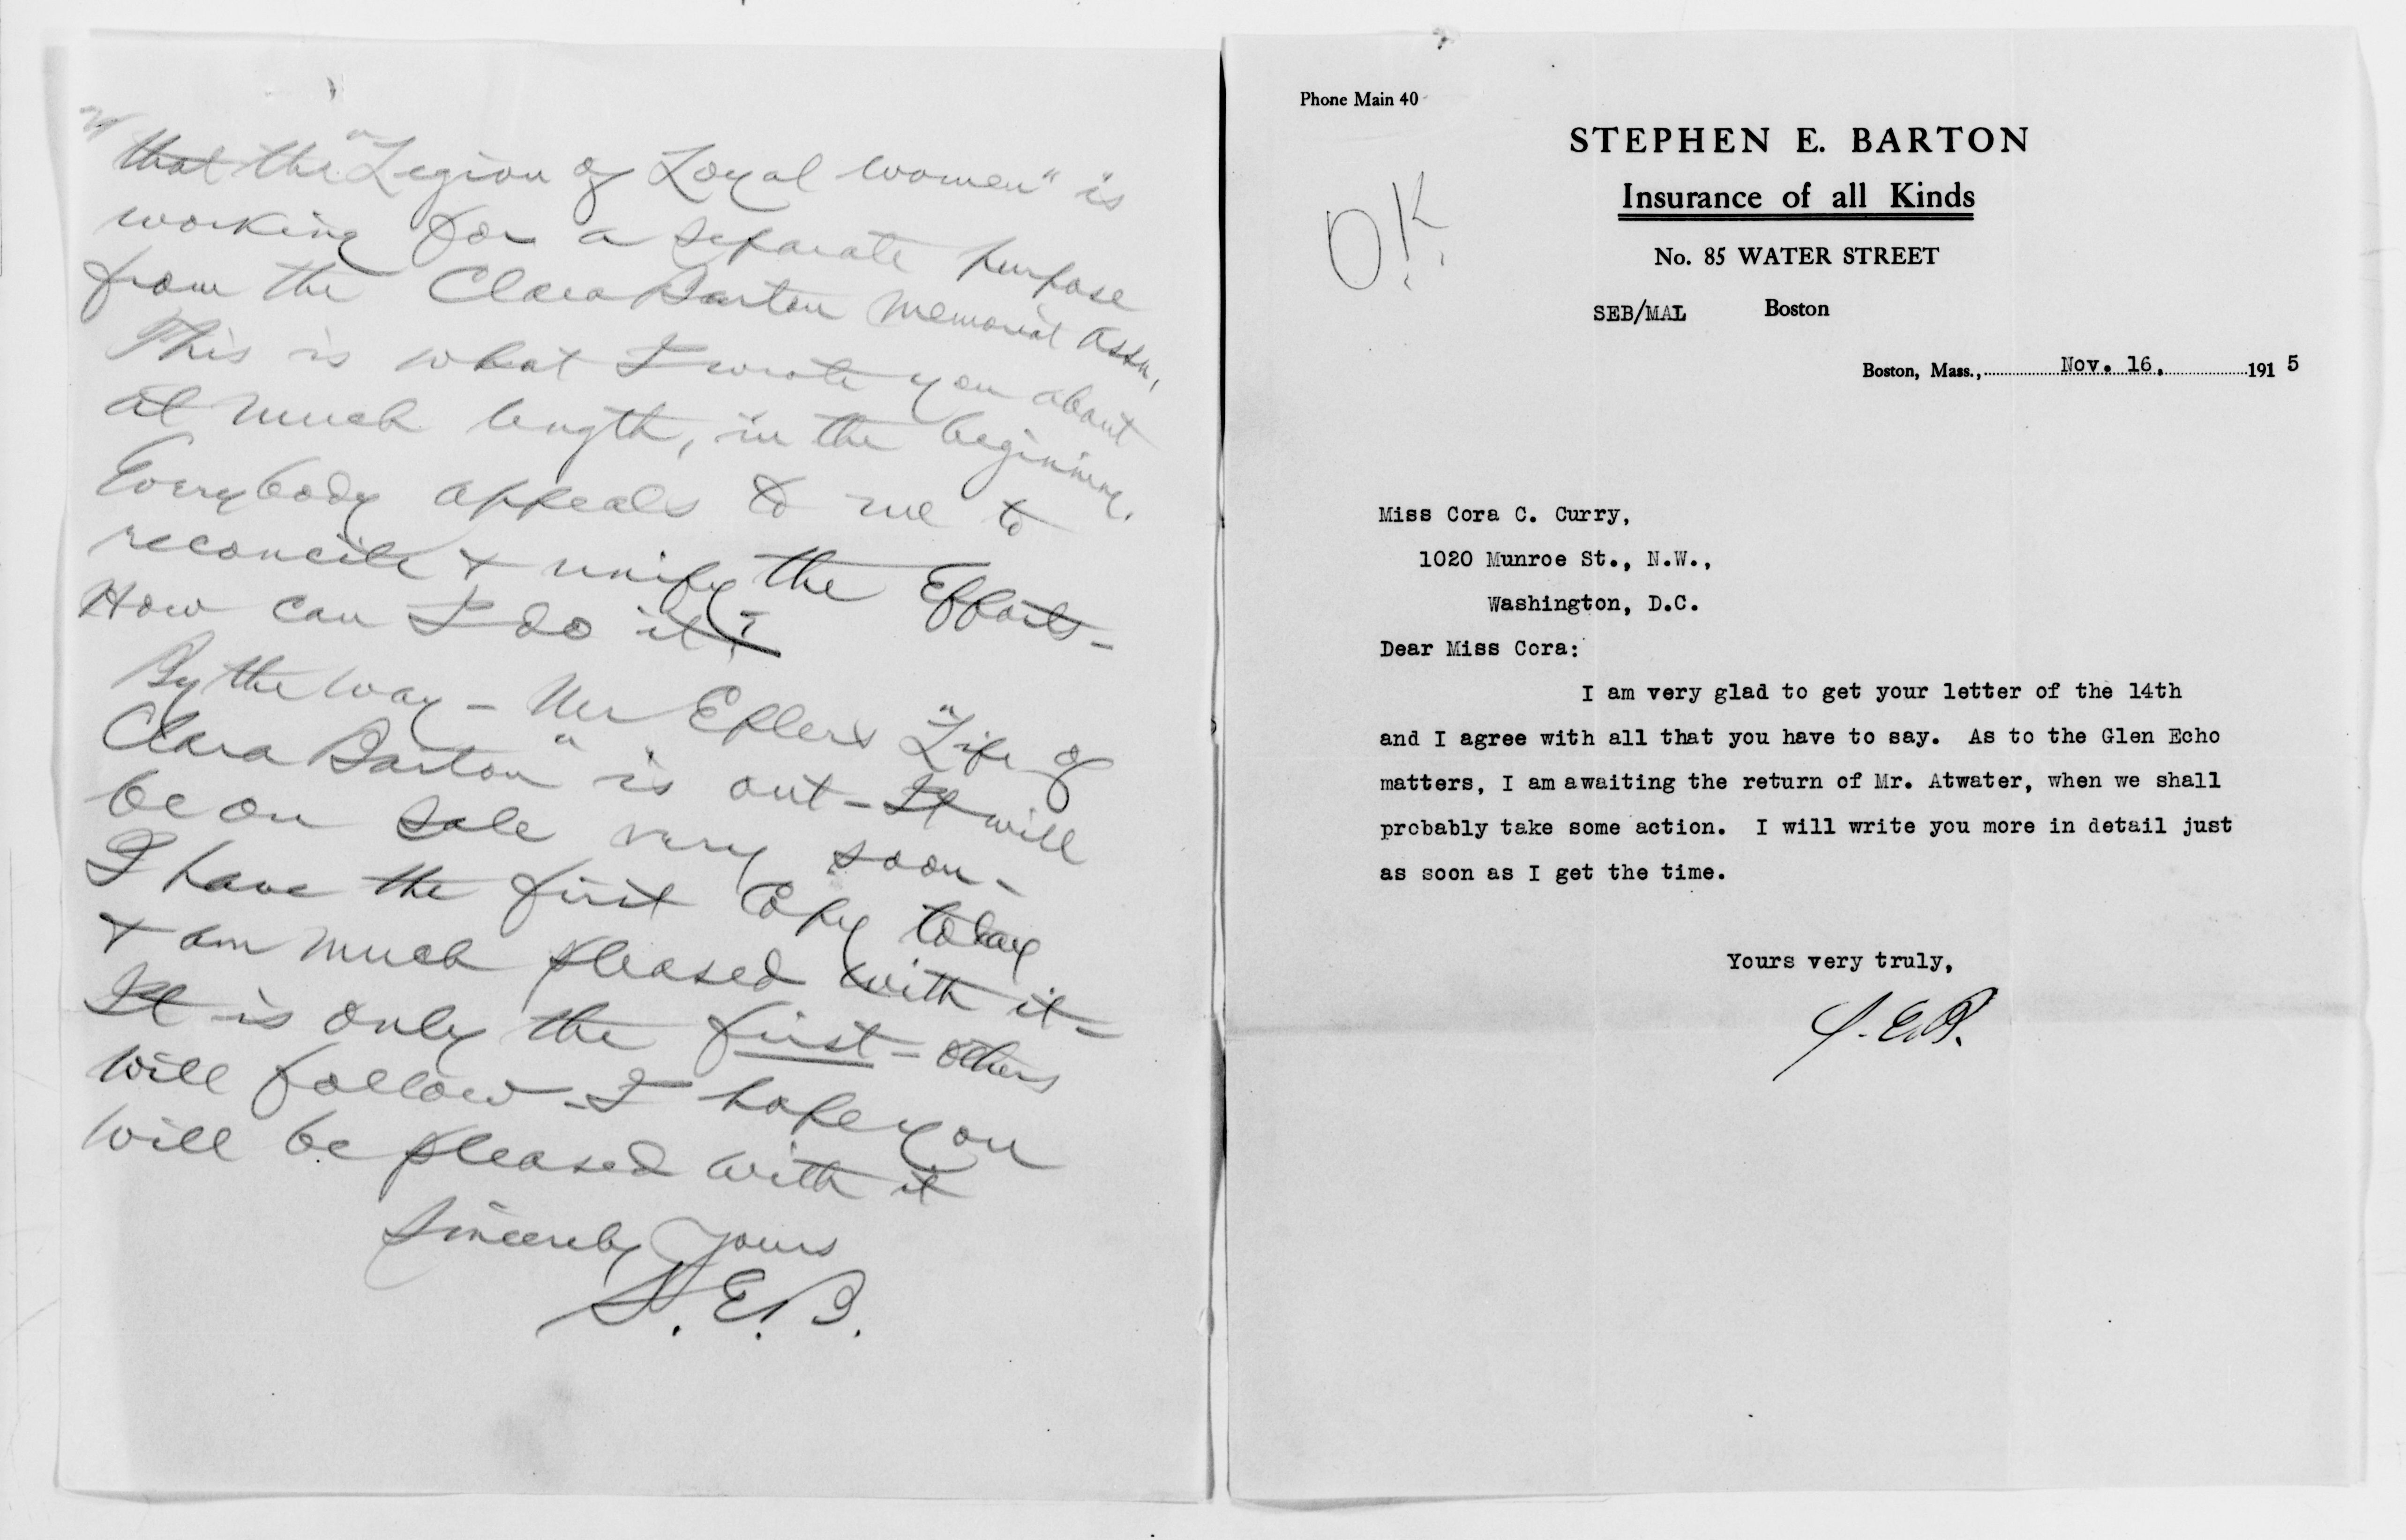 that the "Legion of Loyal women" is
working for a separate purpose
from the Clara Barton Memorial Assn,
This is what I wrote you about
at much length, in the beginning.
Everybody appeals to me to
reconcile & unify the Efforts -
How can I do it?
By the way - Mr Eplers "Life of
Clara Barton" is out - It will
be on sale very soon -
I have the first Copy today
& am much pleased with it -
It is only the first - others
will follow - I hope you
will be pleased with it
Sincerely Yours
S. E. B.
Phone Main 40
STEPHEN E. BARTON
Insurance of all Kinds
No. 85 WATER STREET
SEB/MAL Boston
O.K.
Boston, Mass., Nov. 16, 1915
Miss Cora C. Curry,
1020 Munroe St., N.W.,
Washington, D.C.
Dear Miss Cora:
I am very glad to get your letter of the 14th
and I agree with all that you have to say. As to the Glen Echo
matters, I am awaiting the return of Mr. Atwater, when we shall
probably take some action. I will write you more in detail just
as soon as I get the time.
Yours very truly,
S. E. B.